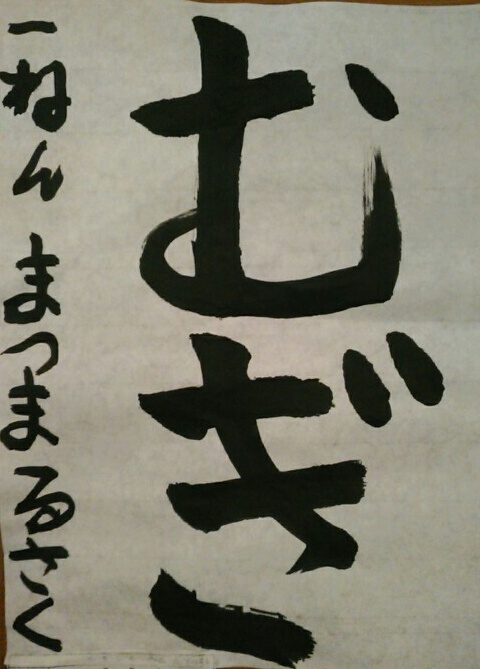 むぎ
一ねん まつまるさく